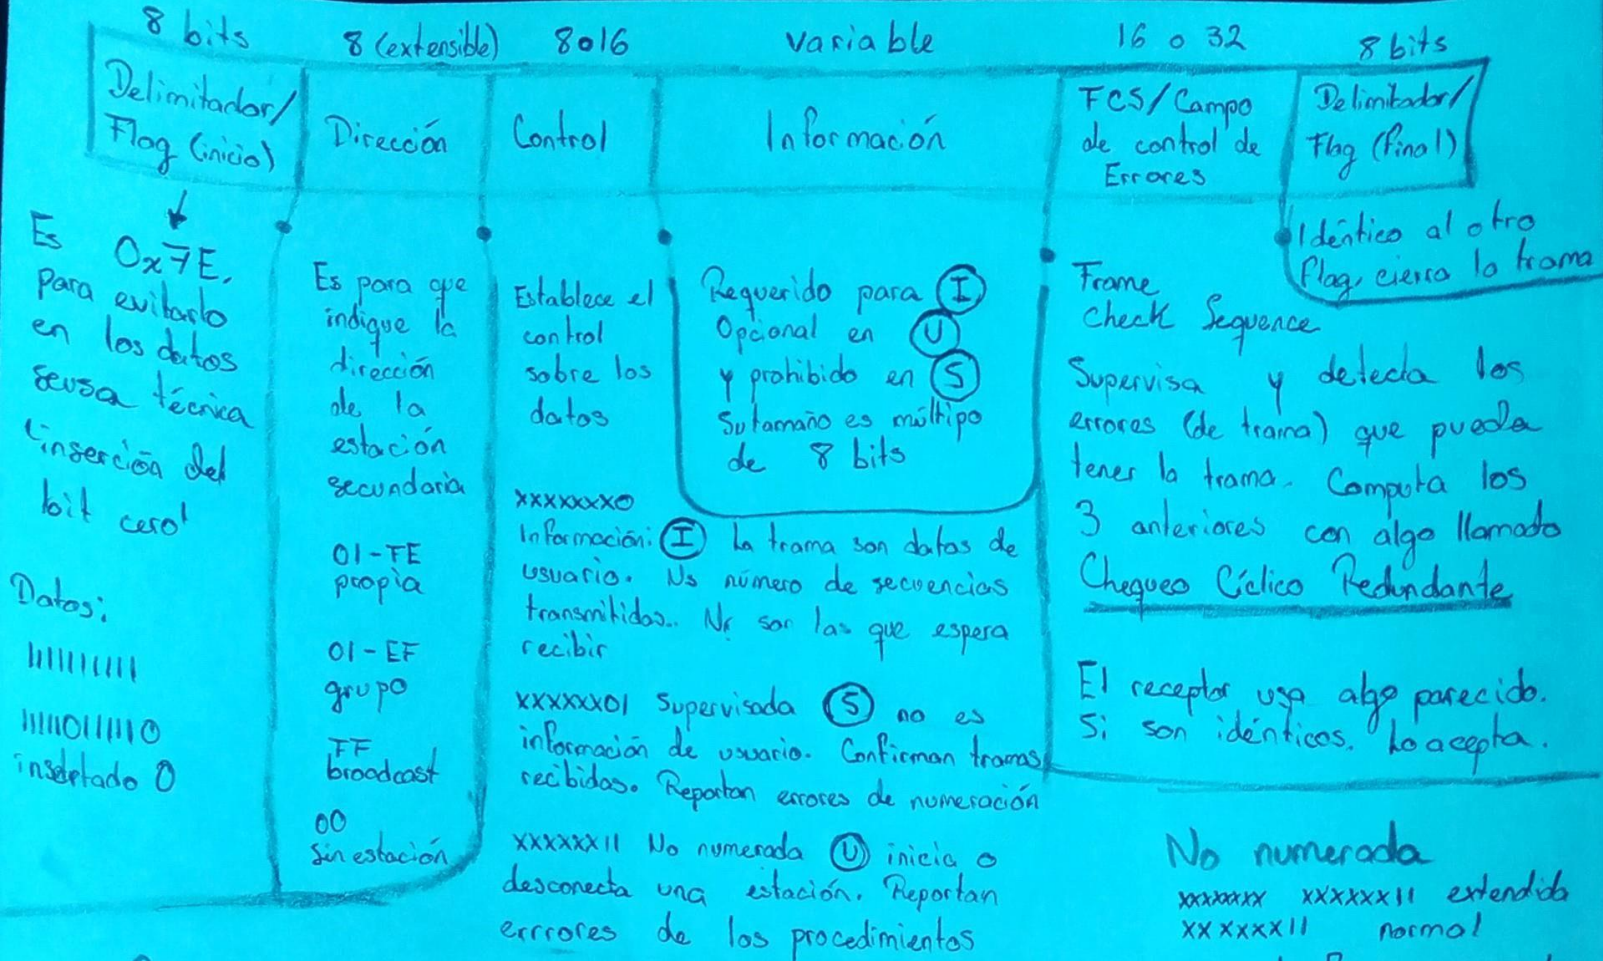 8 bits
8 (extensible)
8 o 16
variable
16 o 32
8 bits
Delimitador/
Flag (inicio)
Dirección
Control
Información
FCS/Campo
de control de
Errores
Delimitador/
Flag (final)
Es 0x7E,
para evitarlo
en los datos
se usa técnica
"inserción del
bit cero"
Datos:
1111111111
111110111110
insertado 0
Es para que
indique la
dirección
de la
estación
secundaria
01-FE
propia
01-EF
grupo
FF
broadcast
00
sin estación
Establece el
control
sobre los
datos
Requerido para I
Opcional en U
y prohibido en S
Su tamaño es múltipo
de 8 bits
xxxxxxx0
Información: I La trama son datos de
usuario. Ns número de secuencias
transmitidas.. Nr son las que espera
recibir
xxxxxx01 Supervisada S no es
información de usuario. Confirman tramas
recibidas. Reportan errores de numeración
xxxxxx11 No numerada U inicia o
desconecta una estación. Reportan
errrores de los procedimientos
Idéntico al otro
flag, cierra la trama
Frame
Check Sequence
Supervisa y detecta los
errores (de trama) que pueda
tener la trama. Computa los
3 anteriores con algo llamado
Chequeo Cíclico Redundante
El receptor usa algo parecido.
Si son idénticos. Lo acepta.
No numerada
xxxxxxxx xxxxxx11 extendida
xxxxxx11 normal